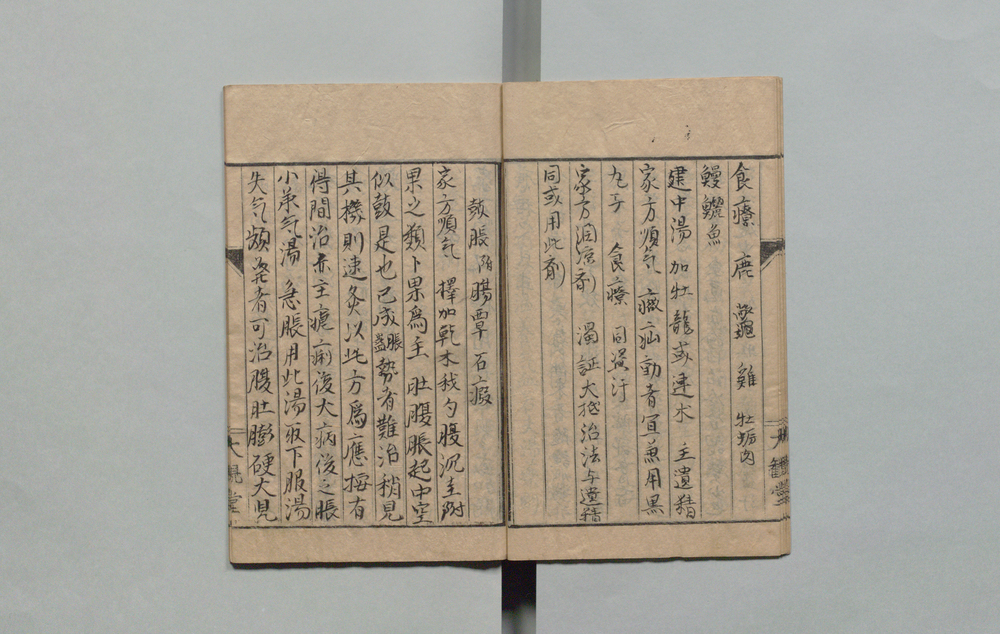 食療 鹿 鼈 雞 牡蛎肉
鰻鱺魚
建中湯 加牡龍或建朮 主遺精
家方順气 癥疝動者宜兼用黒
九子 食療 同盗汗
家方潤涼剤 濁証大抵治法与遺精
同或用此剤
鼓脹附腸覃石瘕
家方順气 擇加乾木我勺腹沉圭附
果之類卜果爲主 肚腹脹起中空
似鼓是也已成蠱脹勢者難治稍見
其機則速灸以此方爲應按有
得間治亦主瘧痢後大病後之脹
小承气湯 急脹用此湯取下服湯
失气頻発者可治腹肚膨硬大見
大観堂